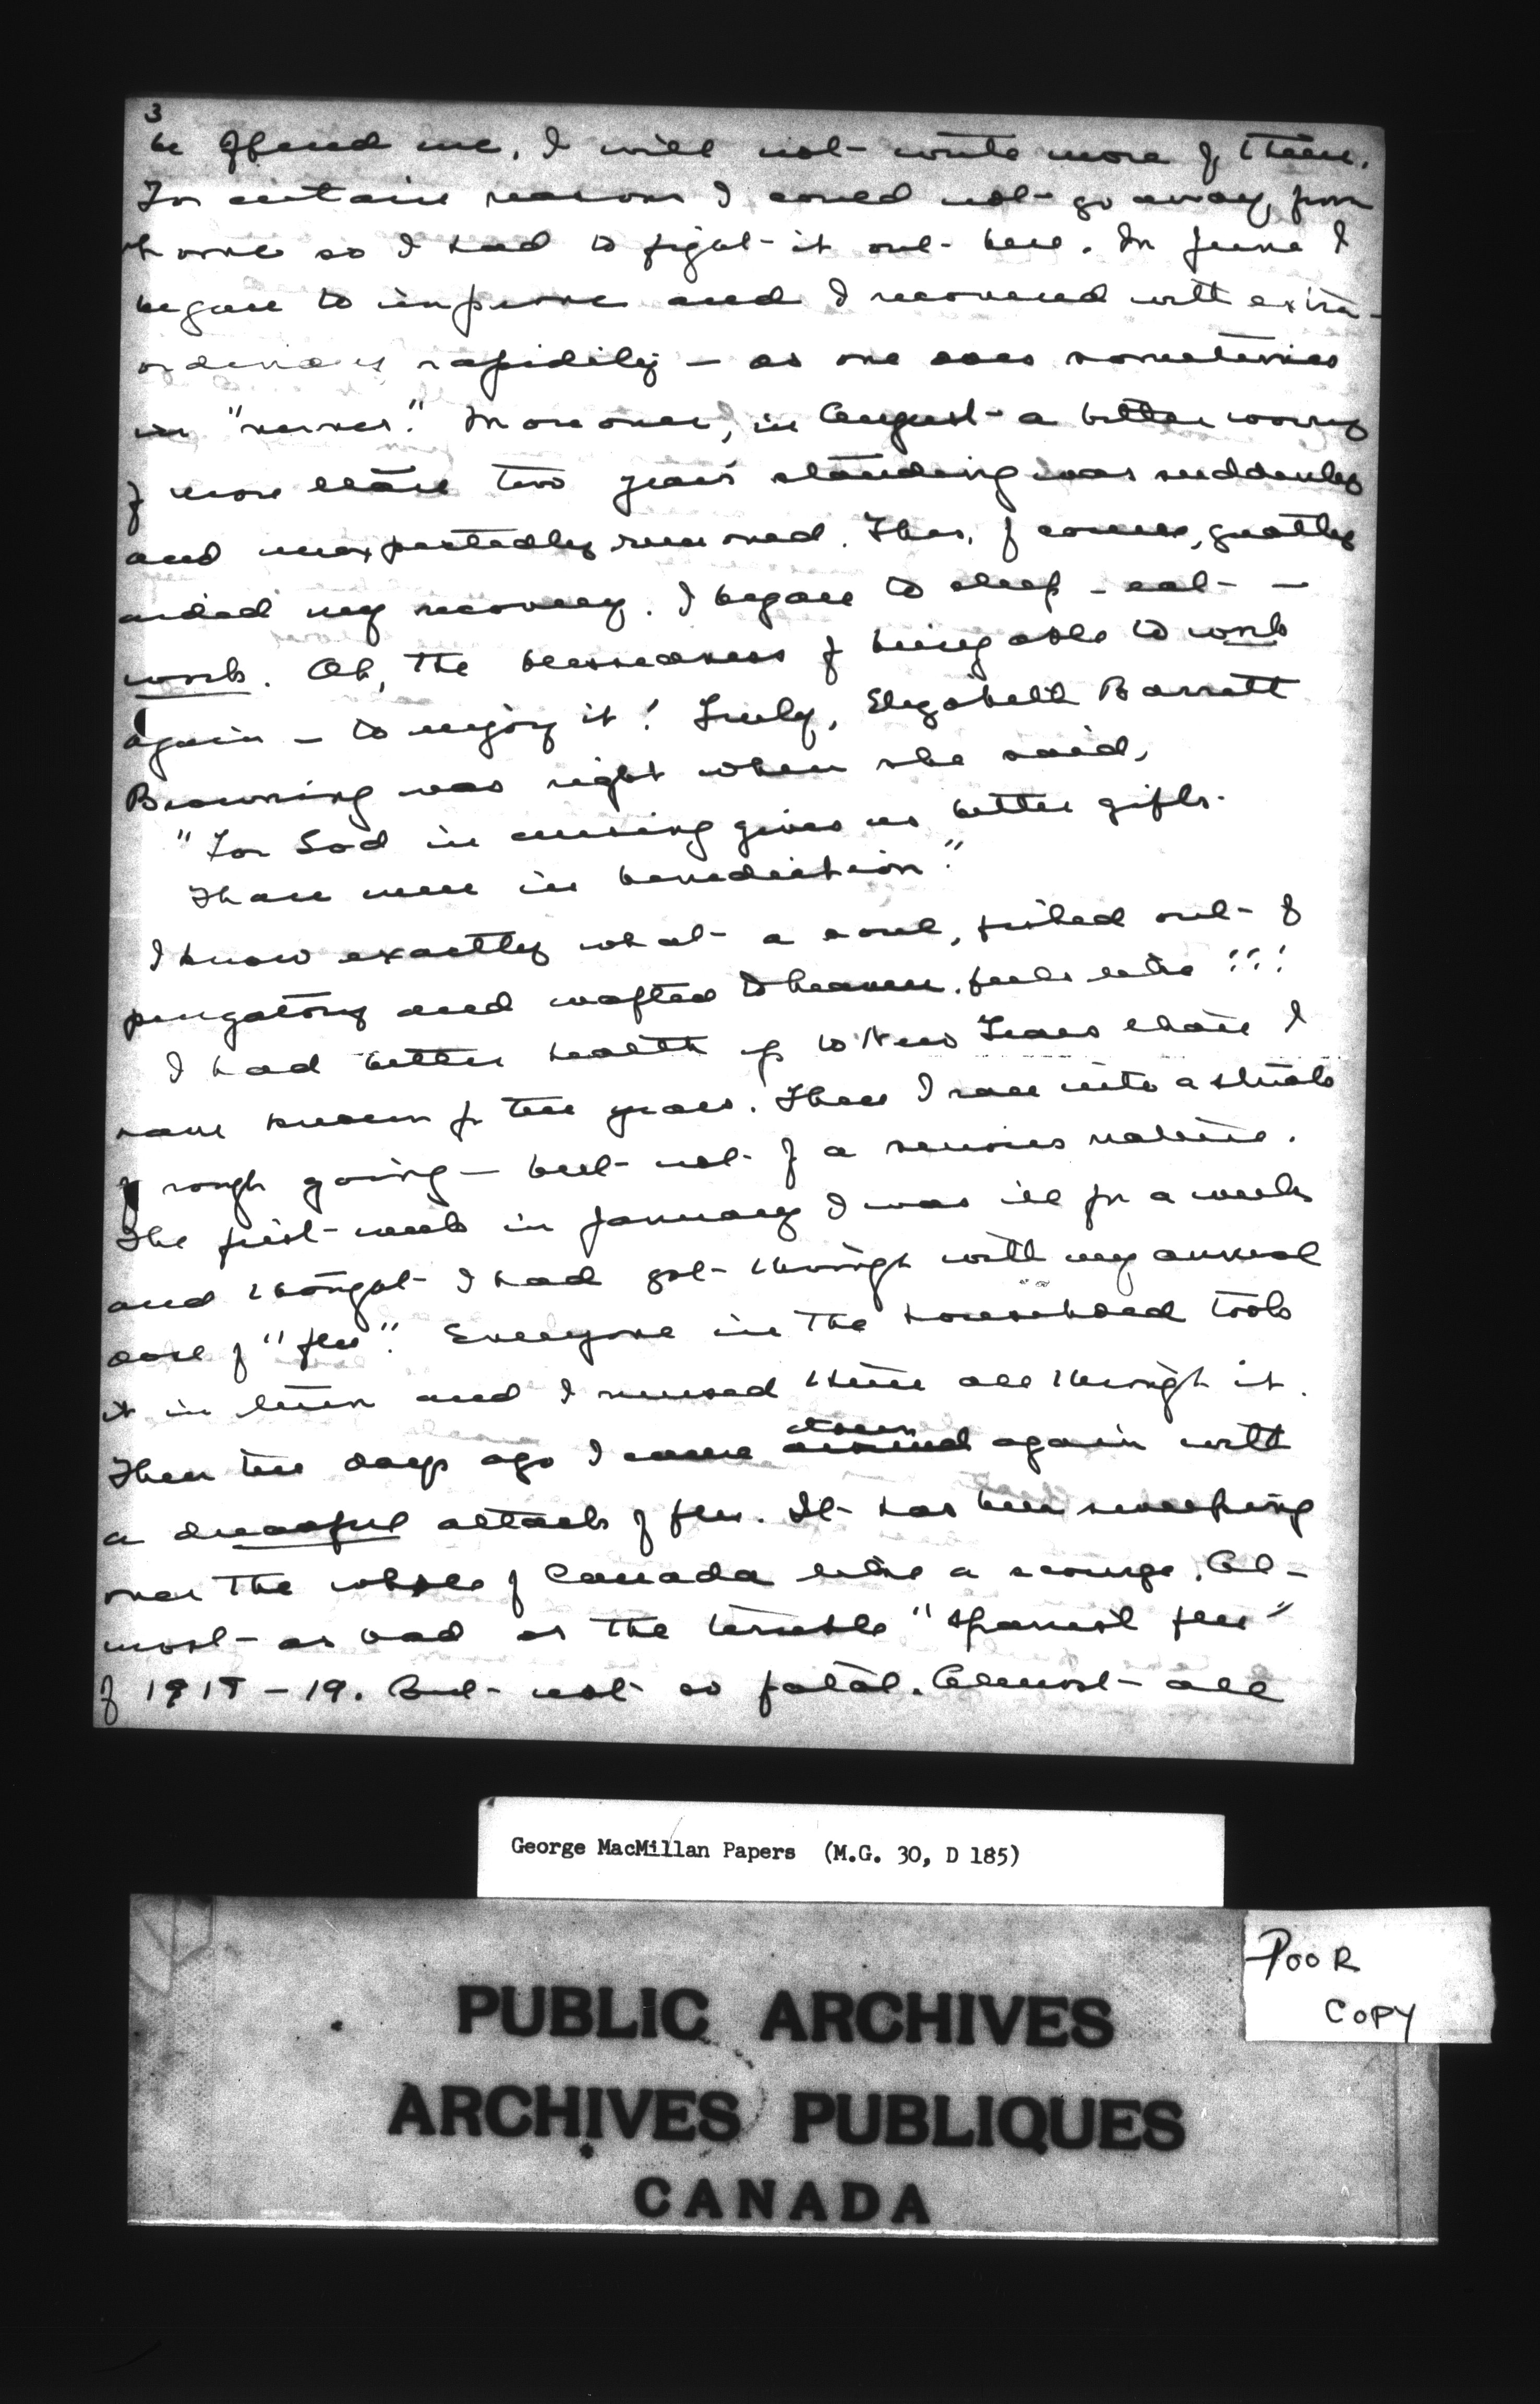 3
be offered me. I will not write more of them.
For certain reasons I could not go away from
home so I had to fight it out here. In June I
began to improve and I recovered with extra-
ordinary rapidity – as one does sometimes
in "nerves". Moreover, in August a bitter worry
of more than two years' standing was suddenly
and unexpectedly removed. This, of course, greatly
aided my recovery. I began to sleep – eat –
work. Oh, the blessedness of being able to work
again – to enjoy it! Truly, Elizabeth Barrett
Browning was right when she said,
"For God in cursing gives us better gifts
Than men in benediction"
I know exactly what a soul, fished out of
purgatory and wafted to heaven, feels like!!!
I had better health up to New Years than I
have known for ten years. Then I ran into a streak
of rough going – but not of a serious nature.
The first week in January I was ill for a week
and thought I had got through with my annual
dose of "flu". Everyone in the household took
it in turn and I nursed them all through it.
Then ten days ago I came down again with
a dreadful attack of flu. It has been sweeping
over the whole of Canada like a scourge. Al-
most as bad as the terrible "Spanish flu"
of 1918–19. But not so fatal. Almost all
George MacMillan Papers (M.G. 30, D 185)
POOR
COPY
PUBLIC ARCHIVES
ARCHIVES PUBLIQUES
CANADA